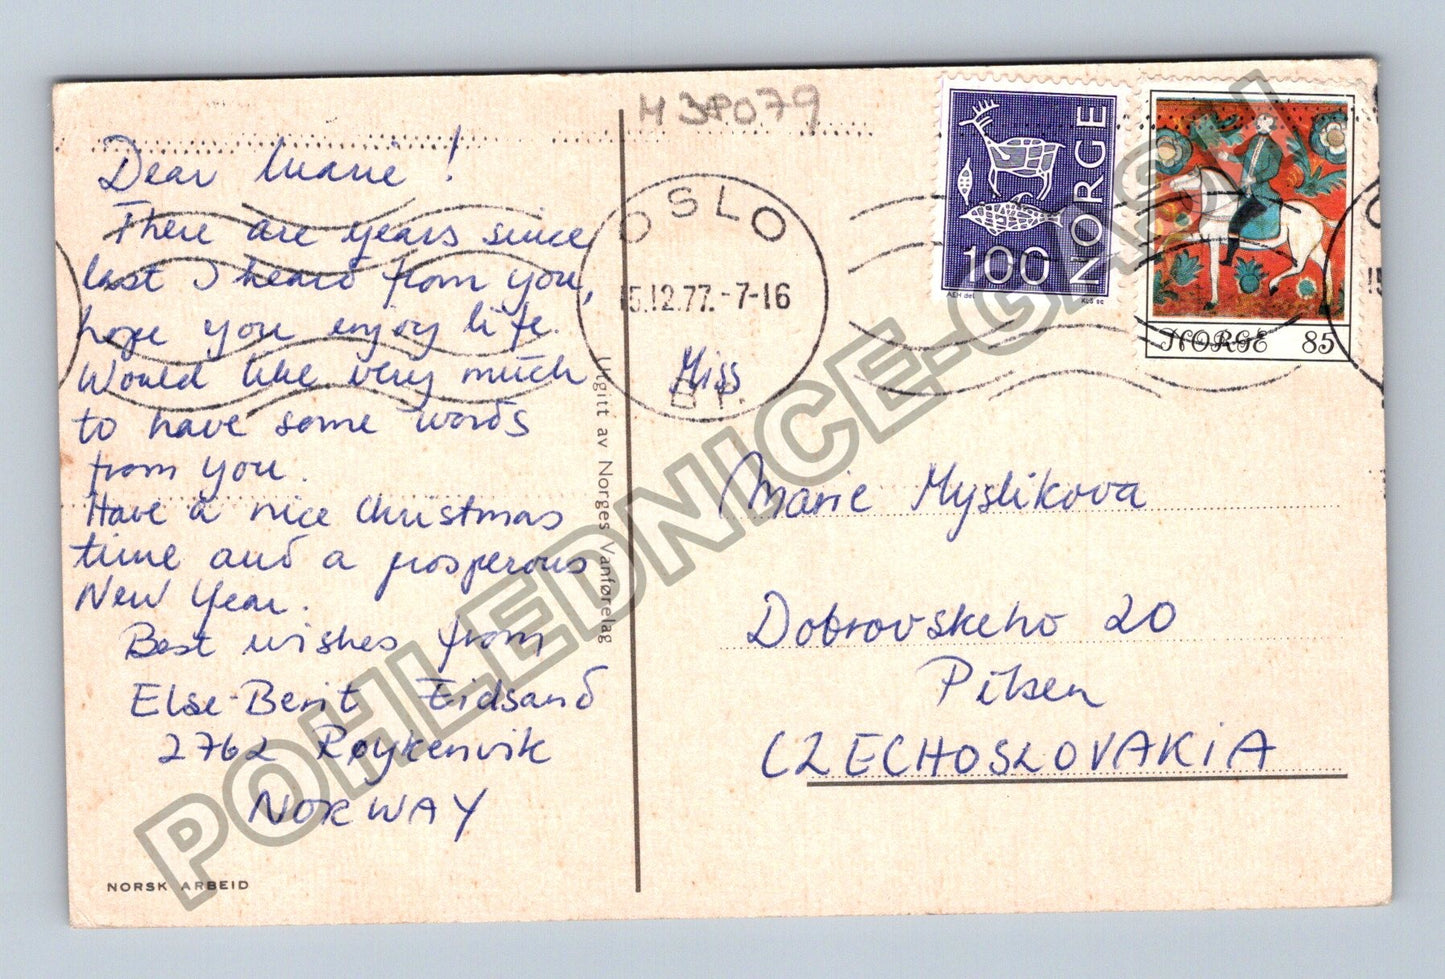 M 38079
Dear Marie !
There are years since
last I heard from you,
hope you enjoy life.
Would like very much
to have some words
from you.
Have a nice Christmas
time and a prosperous
New Year.
Best wishes from
Else-Berit Eidsand
2762 Røykenvik
NORWAY
NORSK ARBEID
Utgitt av Norges Vanførelag
OSLO
15.12.77.-7-16
BR.
NORGE
100
AEH del
KUS sc
NORGE 85
O
15
Miss
Marie Myslikova
Dobrovskeho 20
Pilsen
CZECHOSLOVAKIA
POHLEDNICE-GASH